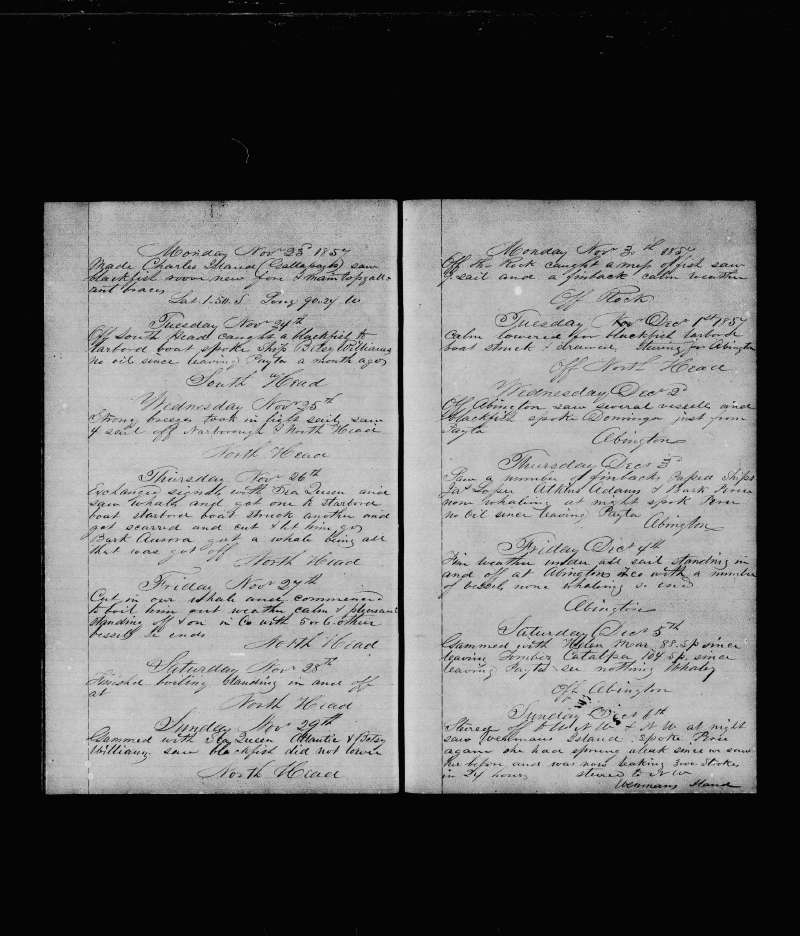 Monday Nov 23d 1857
Made Charles Island (Gallapagos) saw
blackfish rove new fore & main topgall-
ant braces
Lat. 1-50. S Long 90.24 W
Tuesday Nov 24th
Off South Head caught a blackfish to
larbord boat spoke Ship Betsy Williams
no oil since leaving Payta a month ago
South Head
Wednesday Nov 25th
Strong breezes took in light sail saw
4 sail off Narborough & North Head
North Head
Thursday Nov 26th
Exchanged signals with Sea Queen and
saw whales and got one to starbord
boat starbord boat struck another and
got scarred and cut & let him go
Bark Aurora got a whale being all
that was got off
North Head
Friday Nov 27th
Cut in our whale and commenced
to boil him out weather calm & pleasant
standing off & on in Co with 5 or 6 other
vessels so ends
North Head
Saturday Nov 28th
Finished boiling standing in and off
at
North Head
Sunday Nov 29th
Gammed with Sea Queen Atlantic & Betsy
Williams saw blackfish did not lower
North Head
Monday Nov 30th 1857
Off the Rock caught a mess of fish saw
7 sail and a finback calm weather
Off Rock
Tuesday Nov Dec 1st 1857
Calm lowered for blackfish larbord
boat struck & drawed Steering for Abington
Off North Head
Wednesday Dec 2d
Off Abington saw several vessels and
blackfish spoke Dominga just from
Payta
Abington
Thursday Dec 3d
Saw a number of finbacks Passed Ships
Jas Loper Atkins Adams & Bark
none whaling at night spok
no oil since leaving Payta
Abington
Friday Dec 4th
Fine weather under all sail standing in
and off at Abington in co with a number
of vessels none whaling so end
Abington
Saturday Dec 5th
Gammed with Helen Mar 88. Sp since
leaving Tombez Catalpa 104 Sp. since
leaving Payta see nothing Whaley
Off Abington
Sunday Dec 6th
Steered N W at night
saw Wenmans Island spoke
again she had sprung aleak since we saw
her before and was now leaking 3000 Strokes
in 24 hours steered to N W
Wenmans Iland